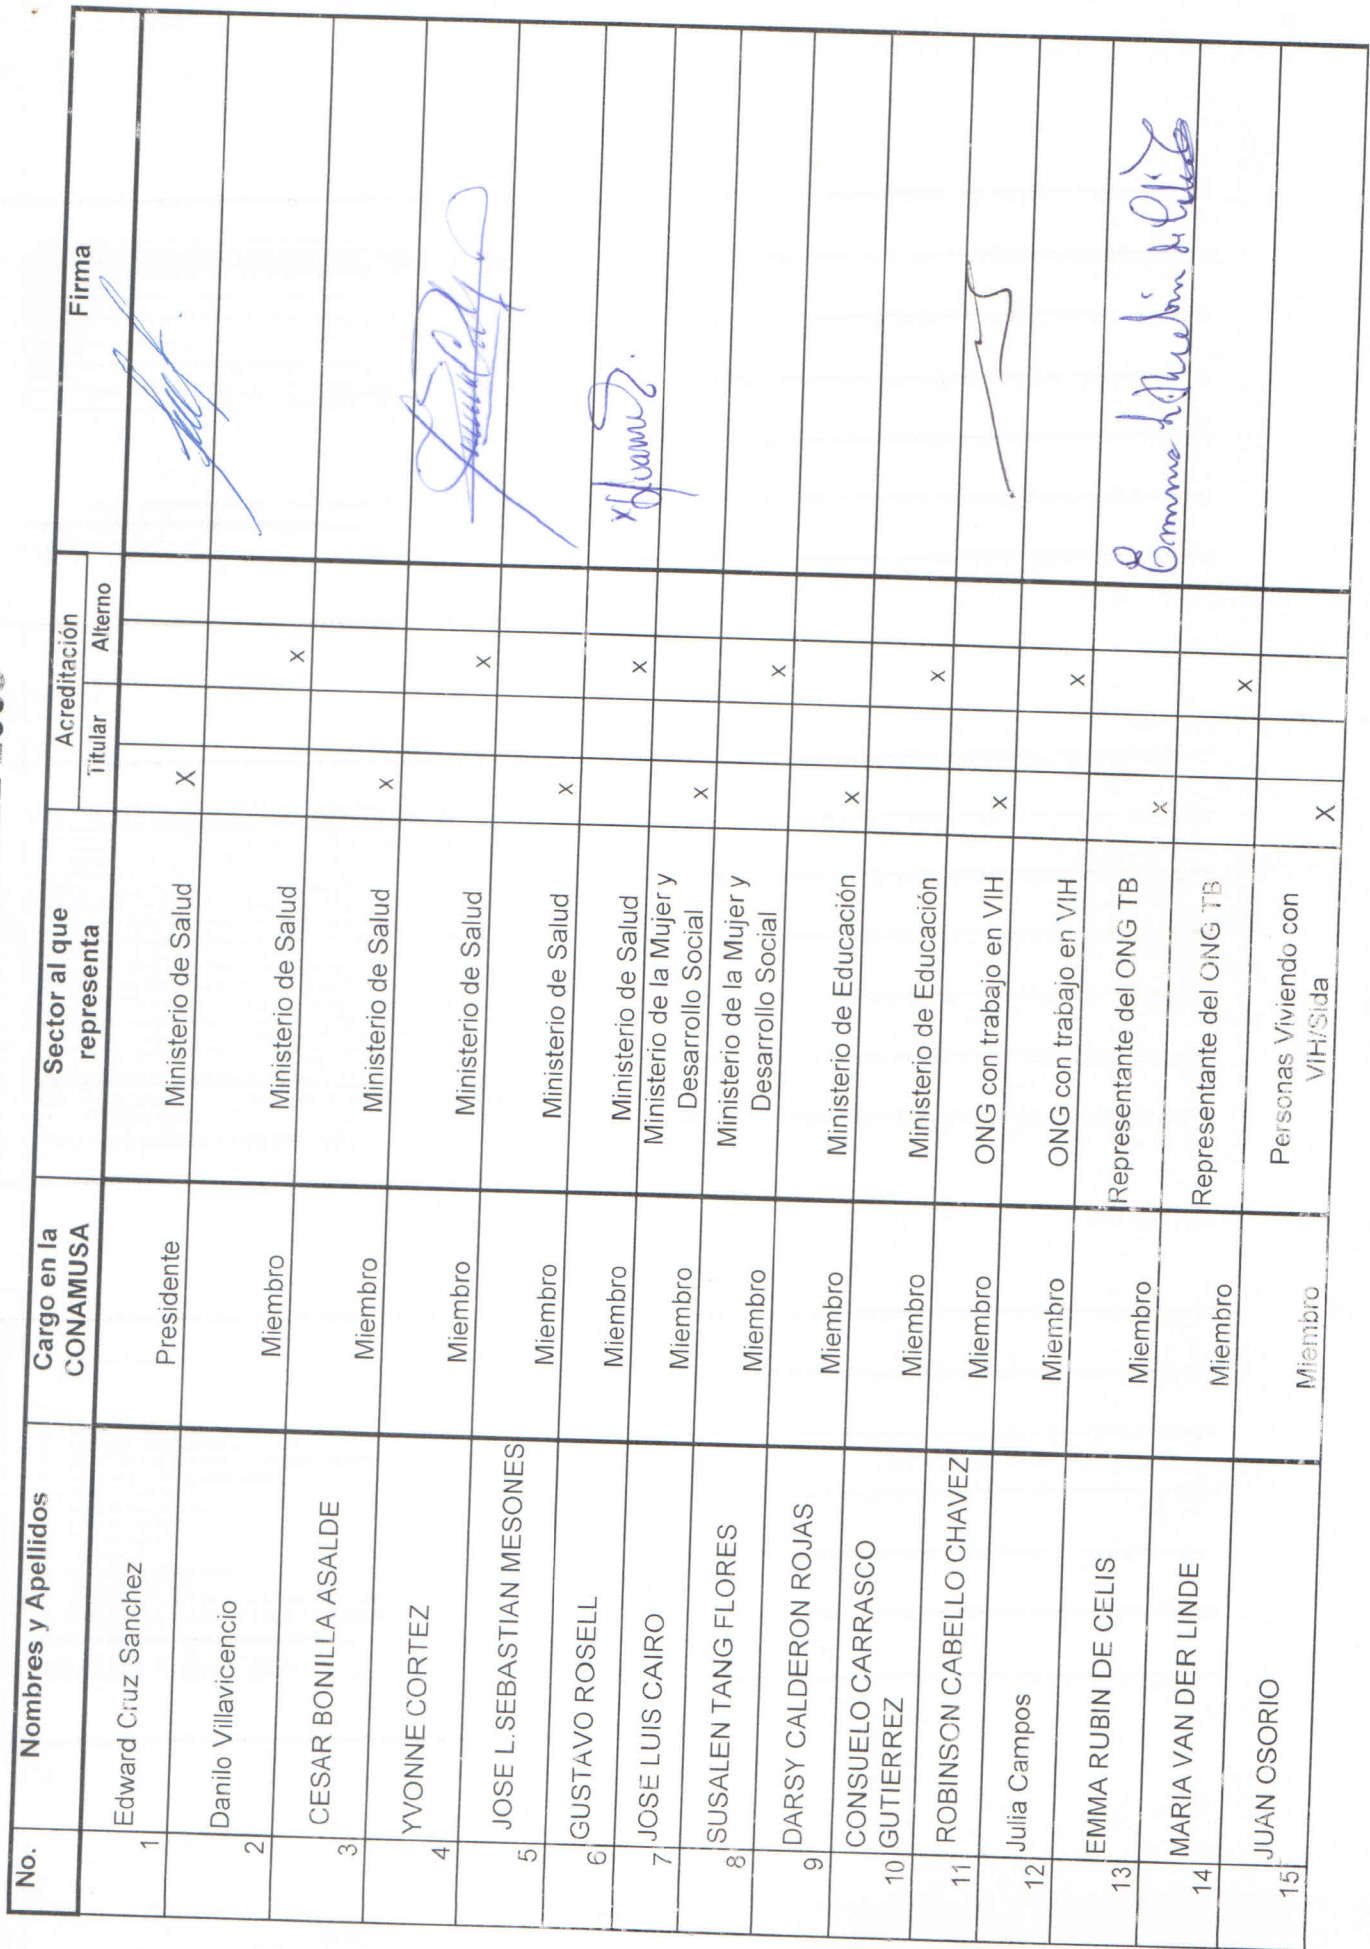 No. Nombres y Apellidos Cargo en la CONAMUSA Sector al que representa Acreditación Firma
Titular Alterno
1 Edward Cruz Sanchez Presidente Ministerio de Salud X
2 Danilo Villavicencio Miembro Ministerio de Salud X
3 CESAR BONILLA ASALDE Miembro Ministerio de Salud X
4 YVONNE CORTEZ Miembro Ministerio de Salud X
5 JOSE L.SEBASTIAN MESONES Miembro Ministerio de Salud X
6 GUSTAVO ROSELL Miembro Ministerio de Salud X
7 JOSE LUIS CAIRO Miembro Ministerio de la Mujer y Desarrollo Social X
8 SUSALEN TANG FLORES Miembro Ministerio de la Mujer y Desarrollo Social X
9 DARSY CALDERON ROJAS Miembro Ministerio de Educación X
10 CONSUELO CARRASCO GUTIERREZ Miembro Ministerio de Educación X
11 ROBINSON CABELLO CHAVEZ Miembro ONG con trabajo en VIH X
12 Julia Campos Miembro ONG con trabajo en VIH X
13 EMMA RUBIN DE CELIS Miembro Representante del ONG TB X
14 MARIA VAN DER LINDE Miembro Representante del ONG TB X
15 JUAN OSORIO Miembro Personas Viviendo con VIH/Sida X